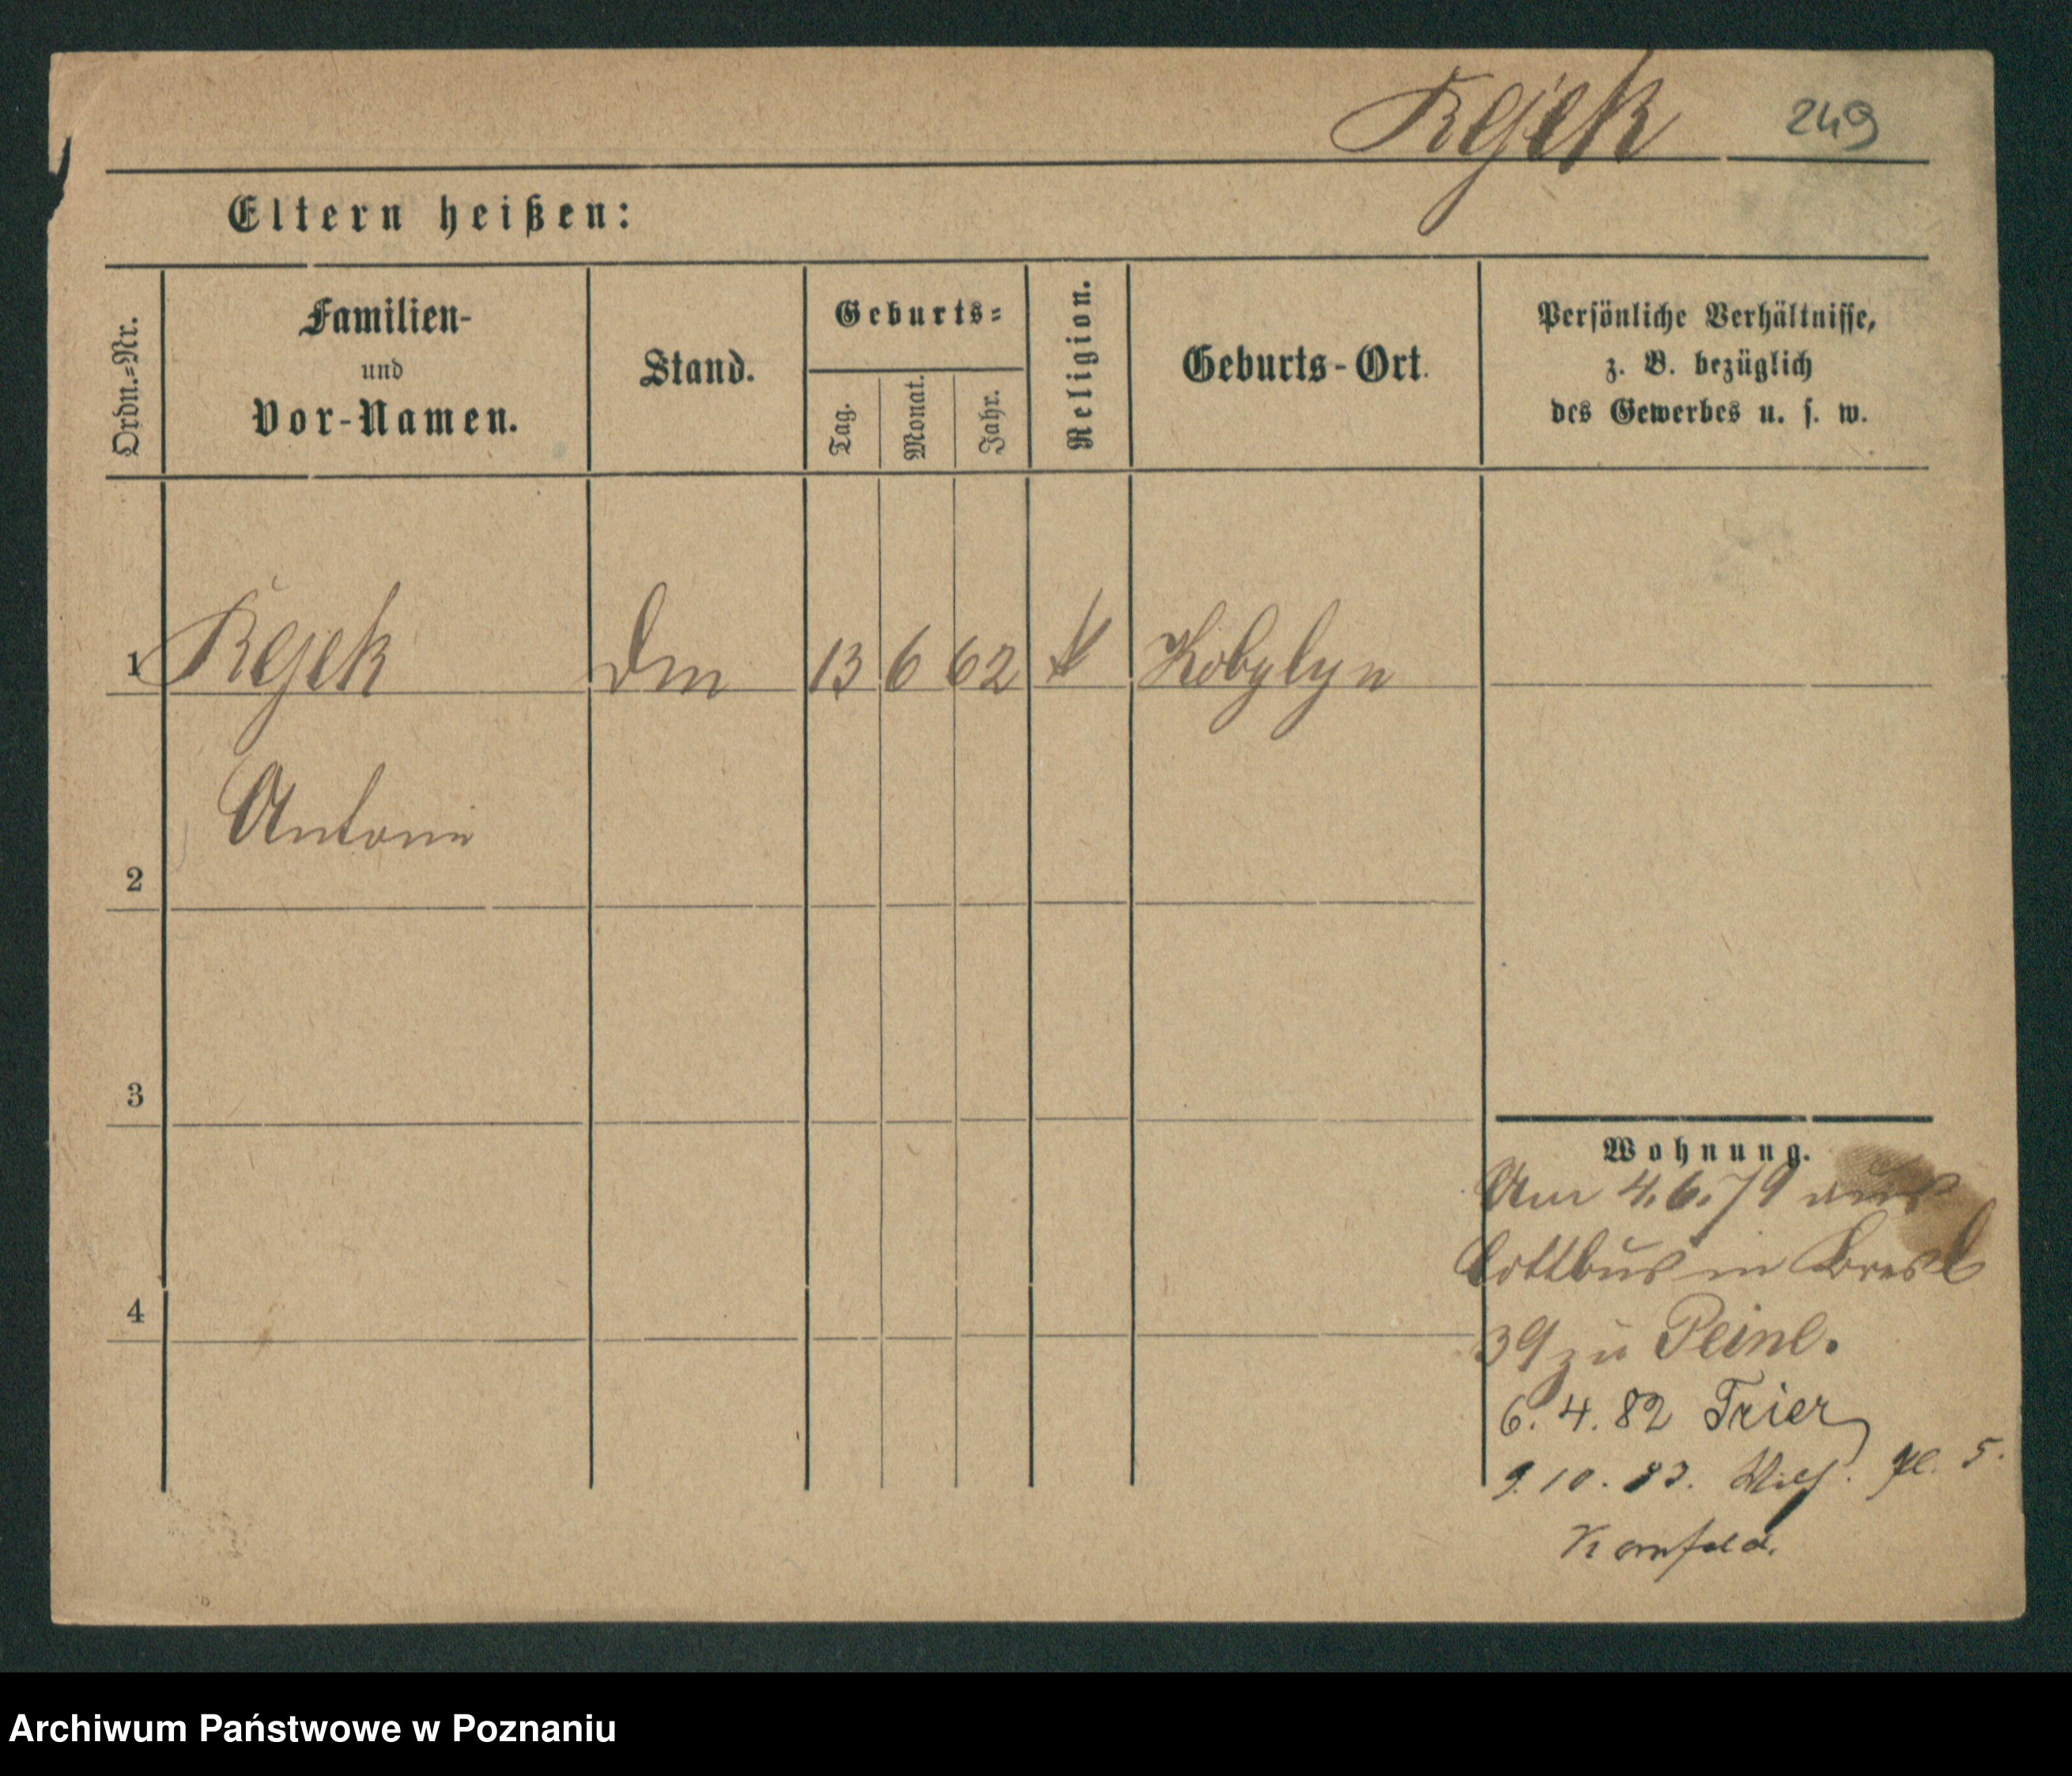 Rejek 249
Eltern heißen:
Ordn.=Nr.
Familien-
und
Vor-Namen.
Stand.
Geburts=
Tag.
Monat.
Jahr.
Religion.
Geburts-Ort.
Persönliche Verhältnisse,
z. B. bezüglich
des Gewerbes u. s. w.
1 Rejek 13 6 62 Kobylyn
Antonie
2
3
4
Wohnung.
Am 4.6.79 aus
Cottbus in Bresl
39 zu
6. 4. 82 Trier
9. 10. 83. Wilh. Pl. 5.
Kornfeld.
Archiwum Państwowe w Poznaniu